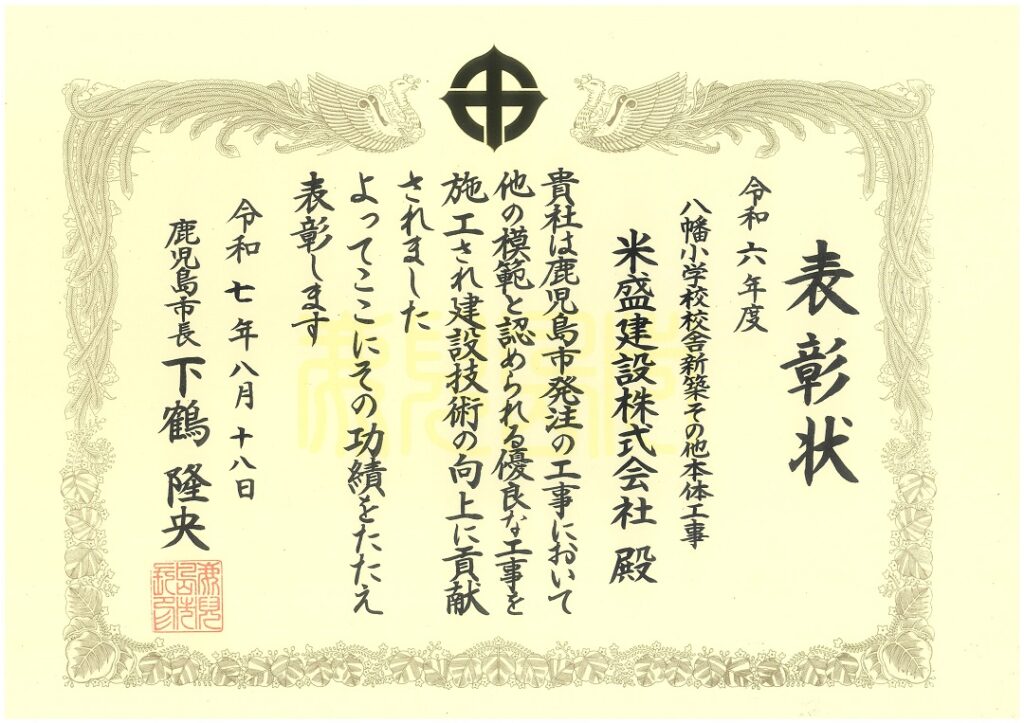 表彰状
令和六年度
八幡小学校校舎新築その他本体工事
米盛建設株式会社 殿
貴社は鹿児島市発注の工事において
他の模範と認められる優良な工事を
施工され建設技術の向上に貢献
されました
よってここにその功績をたたえ
表彰します
令和七年八月十八日
鹿児島市長 下鶴隆央